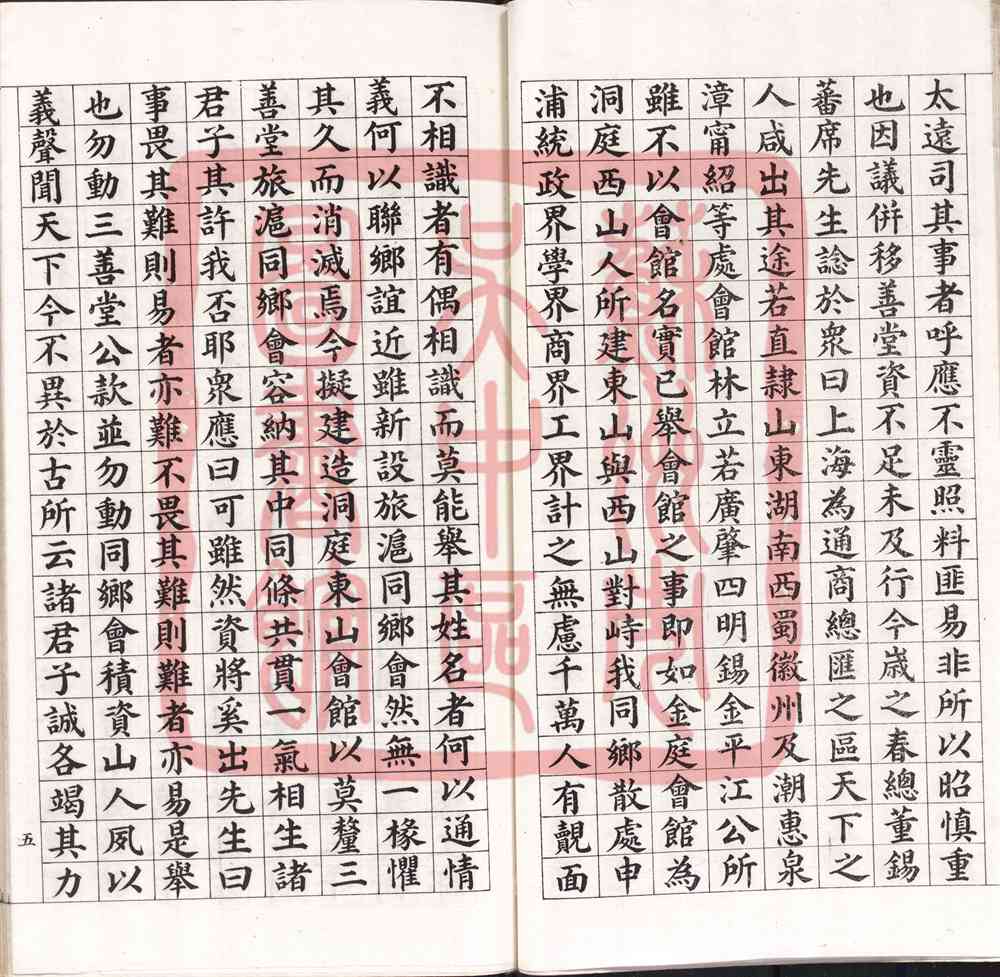 太遠司其事者呼應不靈照料匪易非所以昭慎重
也因議併移善堂資不足未及行今歲之春總董錫
蕃席先生諗於衆曰上海為通商總匯之區天下之
人咸出其途若直隸山東湖南西蜀徽州及潮惠泉
漳甯紹等處會館林立若廣肇四明錫金平江公所
雖不以會館名實已舉會館之事即如金庭會館為
洞庭西山人所建東山與西山對峙我同鄉散處申
浦統政界學界商界工界計之無慮千萬人有覿面
不相識者有偶相識而莫能舉其姓名者何以通情
義何以聯鄉誼近雖新設旅滬同鄉會然無一椽懼
其久而消滅焉今擬建造洞庭東山會館以莫釐三
善堂旅滬同鄉會容納其中同條共貫一氣相生諸
君子其許我否耶衆應曰可雖然資將奚出先生曰
事畏其難則易者亦難不畏其難則難者亦易是舉
也勿動三善堂公款並勿動同鄉會積資山人夙以
義聲聞天下今不異於古所云諸君子誠各竭其力
五
蘇州市
吳中區
圖書館